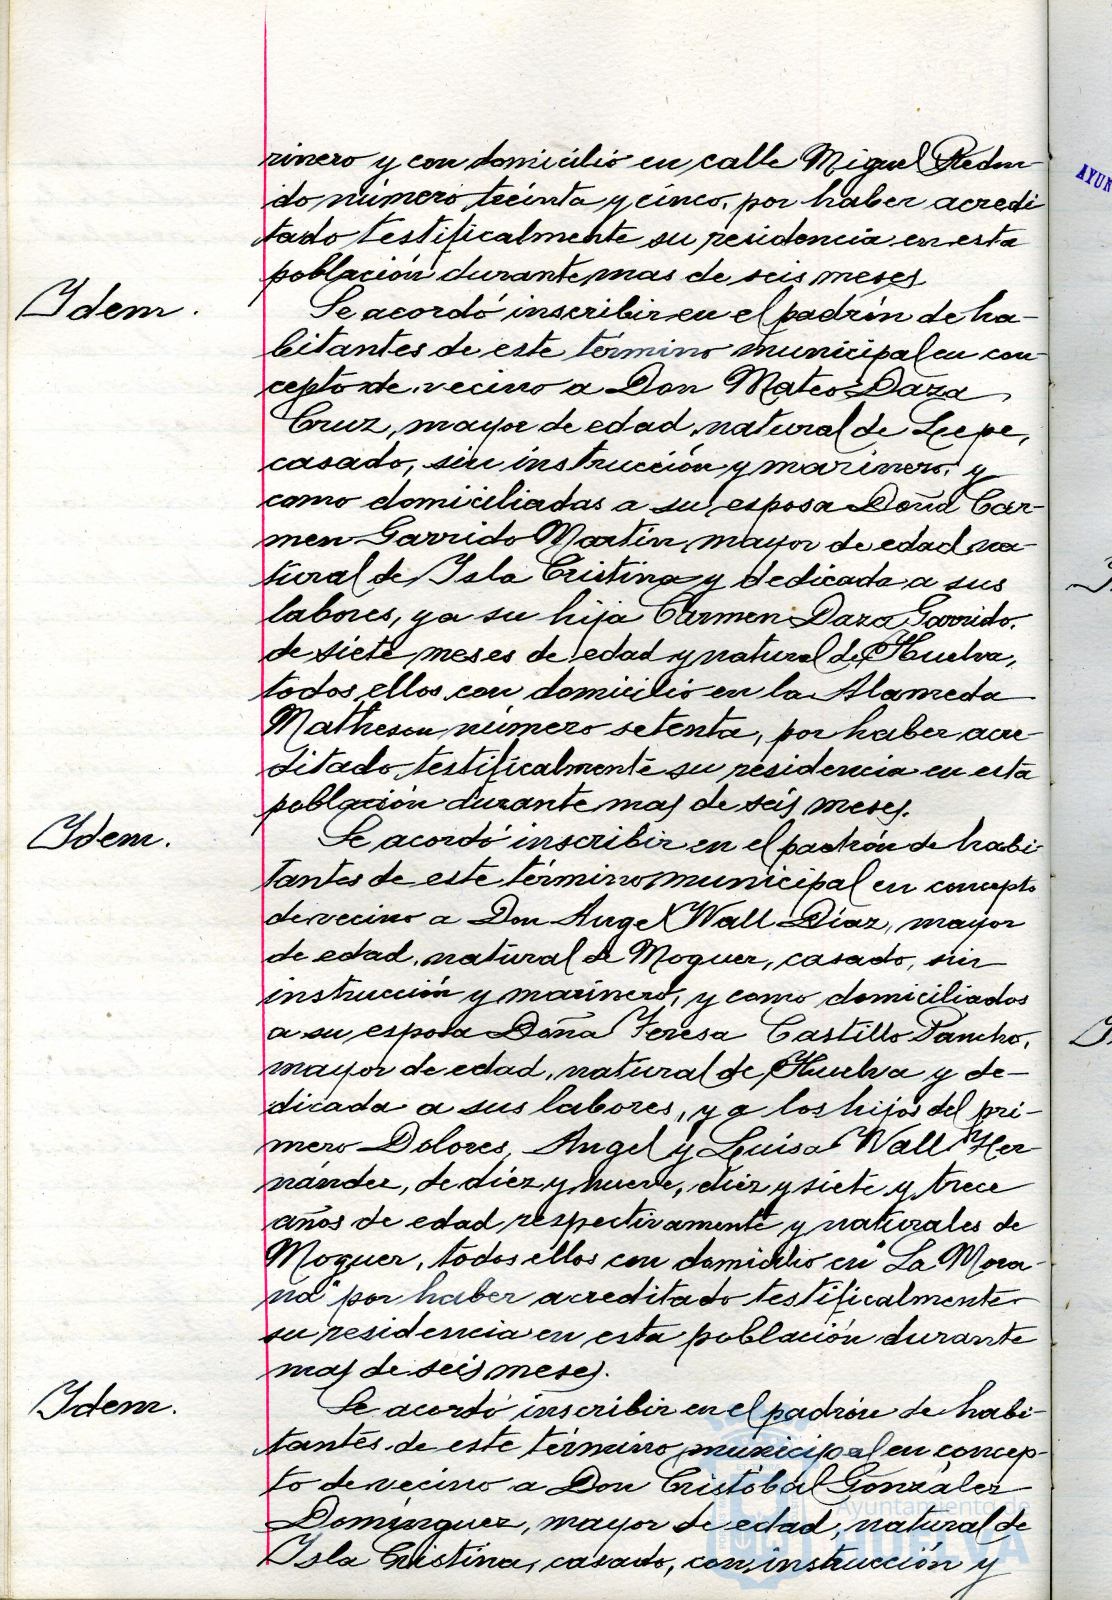 rinero y con domicilio en calle Miguel Redon-
do número treinta y cinco, por haber acredi
tado testificalmente su residencia en esta
población durante mas de seis meses
Idem.
Se acordó inscribir en el padrón de ha-
bitantes de este término municipal en con-
cepto de vecino a Don Mateo Daza
Cruz, mayor de edad, natural de Lepe,
casado, sin instrucción y marinero, y
como domiciliadas a su esposa Doña Car-
men Garrido Martín, mayor de edad na-
tural de Isla Cristina y dedicada a sus
labores, y a su hija Carmen Daza Garrido,
de siete meses de edad y natural de Huelva,
todos ellos con domicilio en la Alameda
Matheson número setenta, por haber acre-
ditado testificalmente su residencia en esta
población durante mas de seis meses.
Idem.
Se acordó inscribir en el padrón de habi-
tantes de este término municipal en concepto
de vecino a Don Angel Wall Díaz, mayor
de edad, natural de Moguer, casado, sin
instrucción y marinero, y como domiciliados
a su esposa Doña Teresa Castillo Pancho,
mayor de edad, natural de Huelva y de-
dicada a sus labores, y a los hijos del pri-
mero Dolores, Angel y Luisa Wall Her-
nández, de diez y nueve, diez y siete y trece
años de edad respectivamente y naturales de
Moguer, todos ellos con domicilio en "La Mora-
na" por haber acreditado testificalmente
su residencia en esta población durante
mas de seis meses.
Idem.
Se acordó inscribir en el padrón de habi-
tantes de este término municipal en concep-
to de vecino a Don Cristóbal González
Domínguez, mayor de edad, natural de
Isla Cristina, casado, con instrucción y
Ayuntamiento de
HUELVA
AYUN